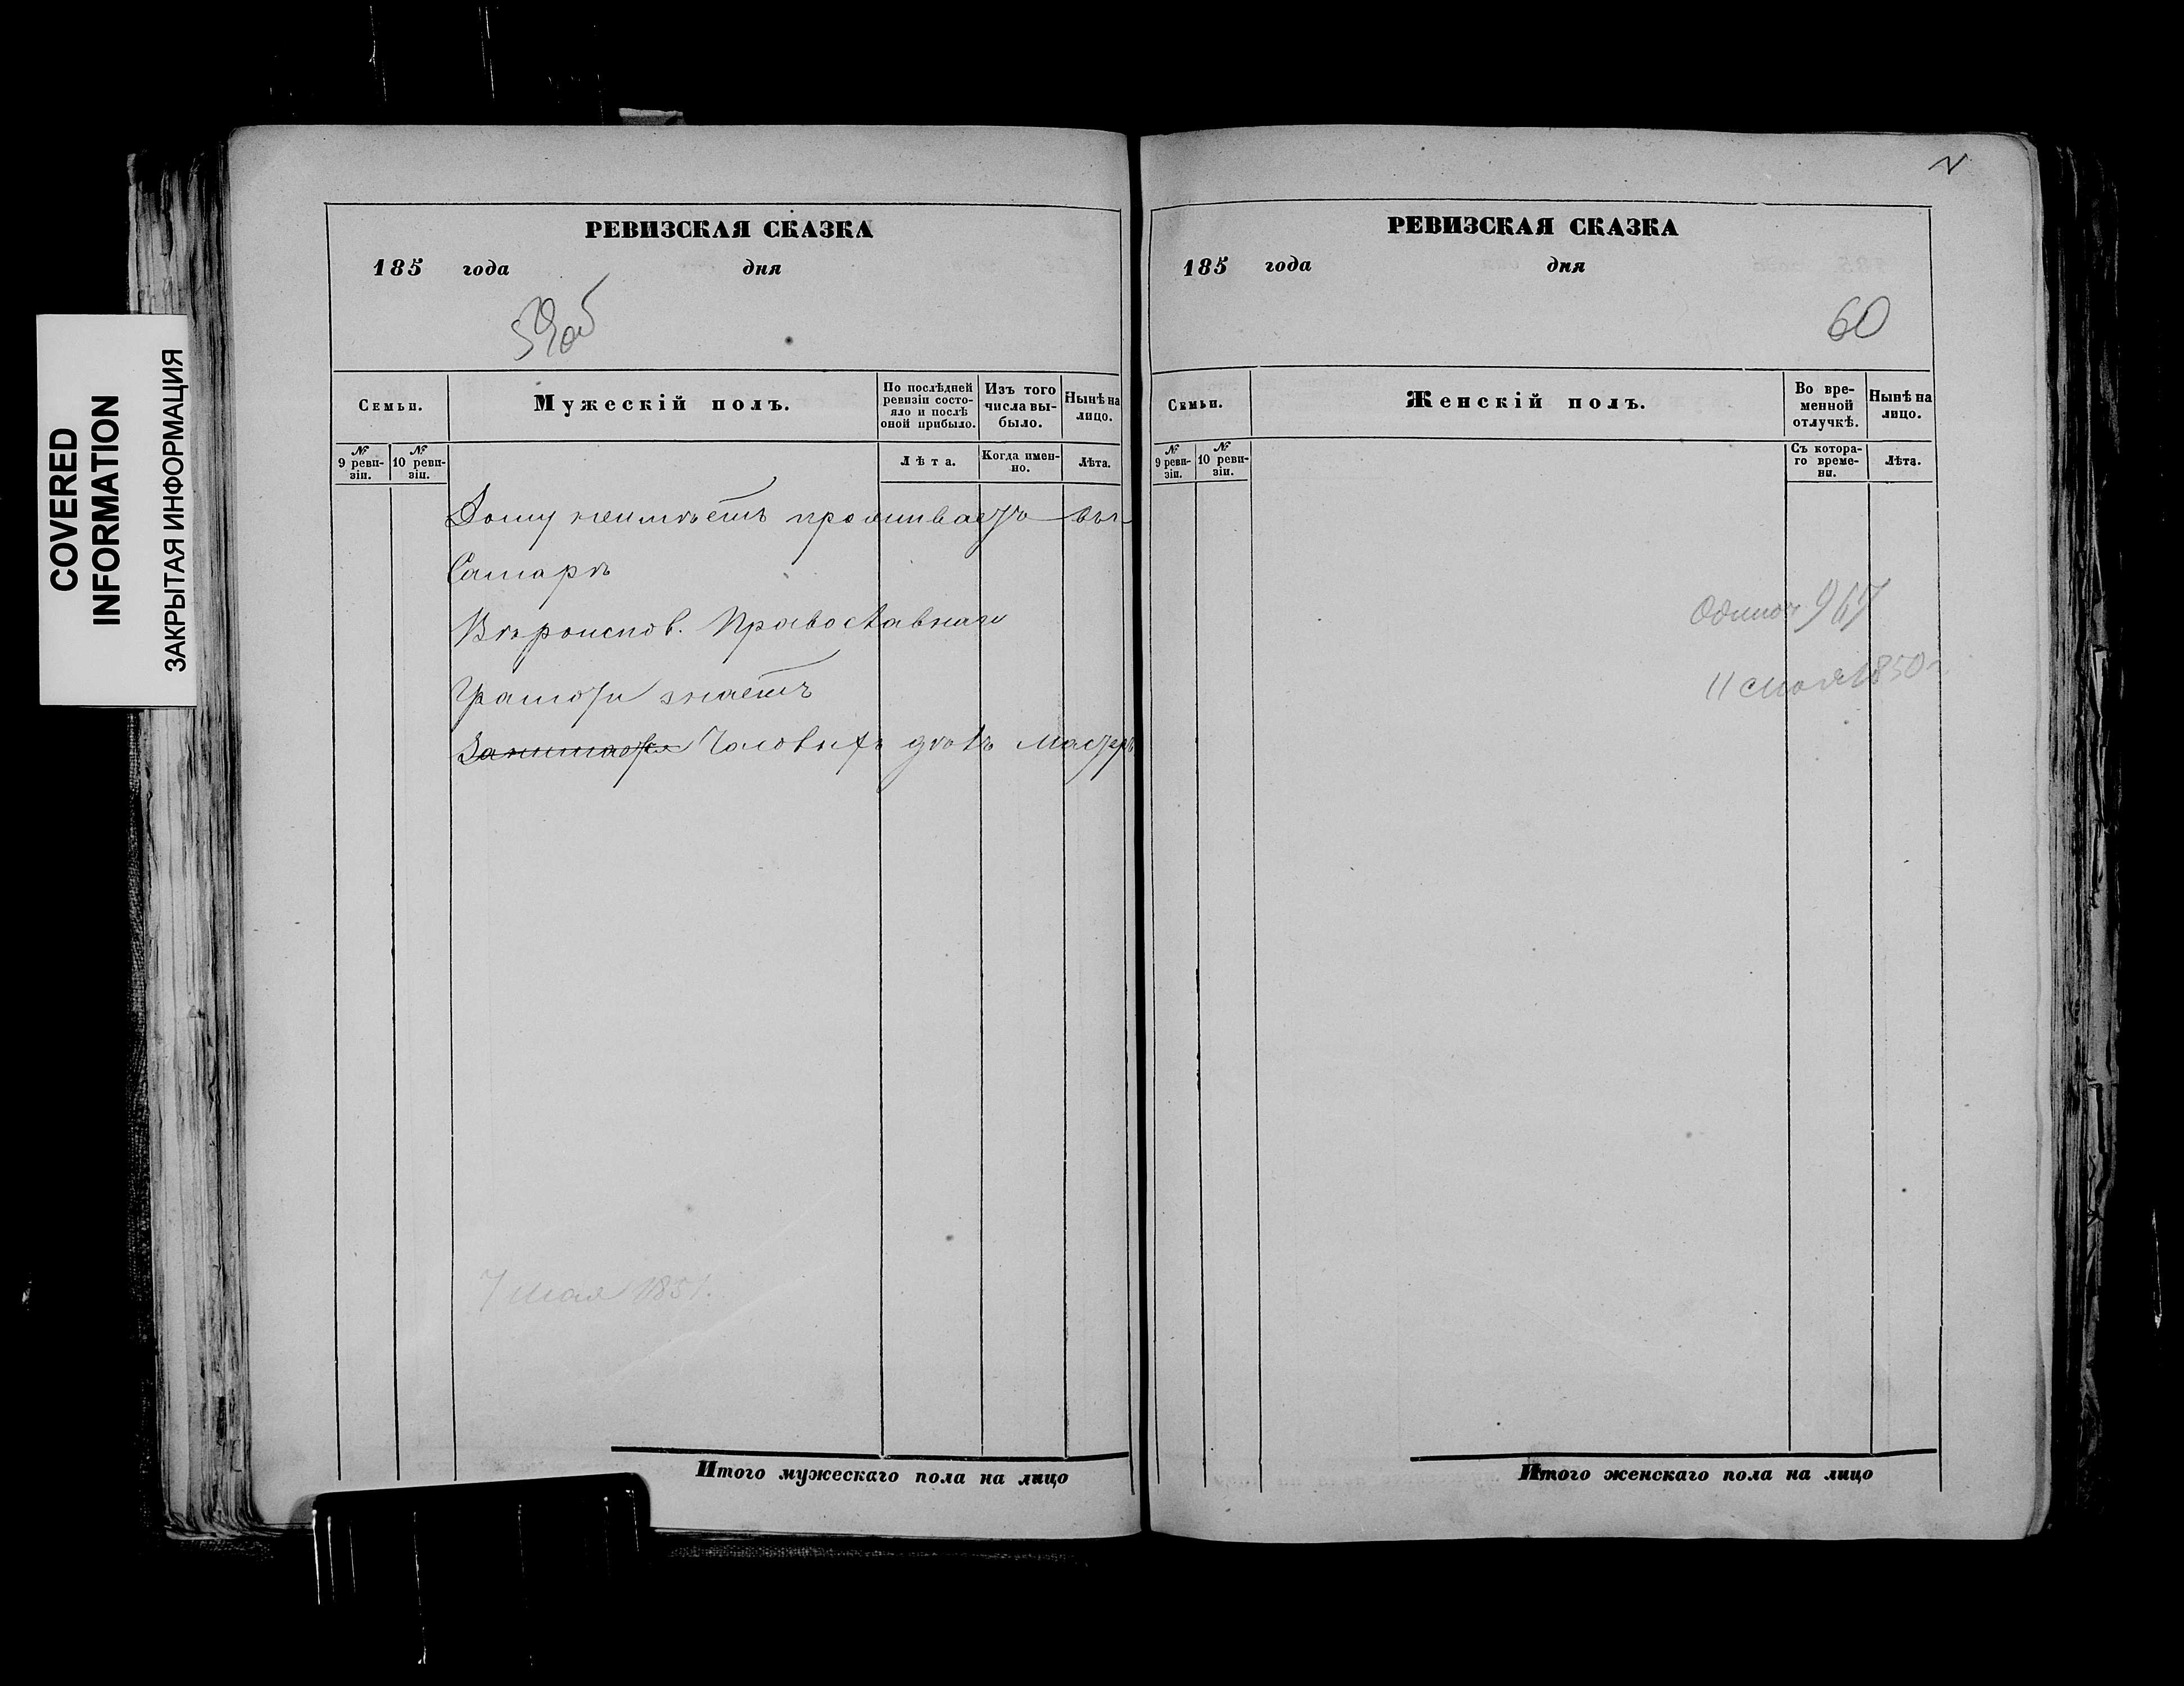 COVERED
INFORMATION
ЗАКРЫТАЯ ИНФОРМАЦИЯ
РЕВИЗСКАЯ СКАЗКА
185 года дня
59об
Семьи.
Мужескій полъ.
По послѣдней ревизіи состояло и послѣ оной прибыло.
Изъ того числа выбыло.
Нынѣ на лицо.
№ 9 ревизіи.
№ 10 ревизіи.
Лѣта.
Когда именно.
Лѣта.
Дому неимѣетъ проживаетъ въ
Самарѣ
Вѣроиспов. Православнаго
Грамоти знаетъ
Занимается Часовыхъ дѣлъ мастеръ
7 мая 1851.
Итого мужескаго пола на лицо
РЕВИЗСКАЯ СКАЗКА
185 года дня
60
Семьи.
Женскій полъ.
Во временной отлучкѣ.
Нынѣ на лицо.
№ 9 ревизіи.
№ 10 ревизіи.
Съ котораго времени.
Лѣта.
11 мая 1850 г.
Итого женскаго пола на лицо